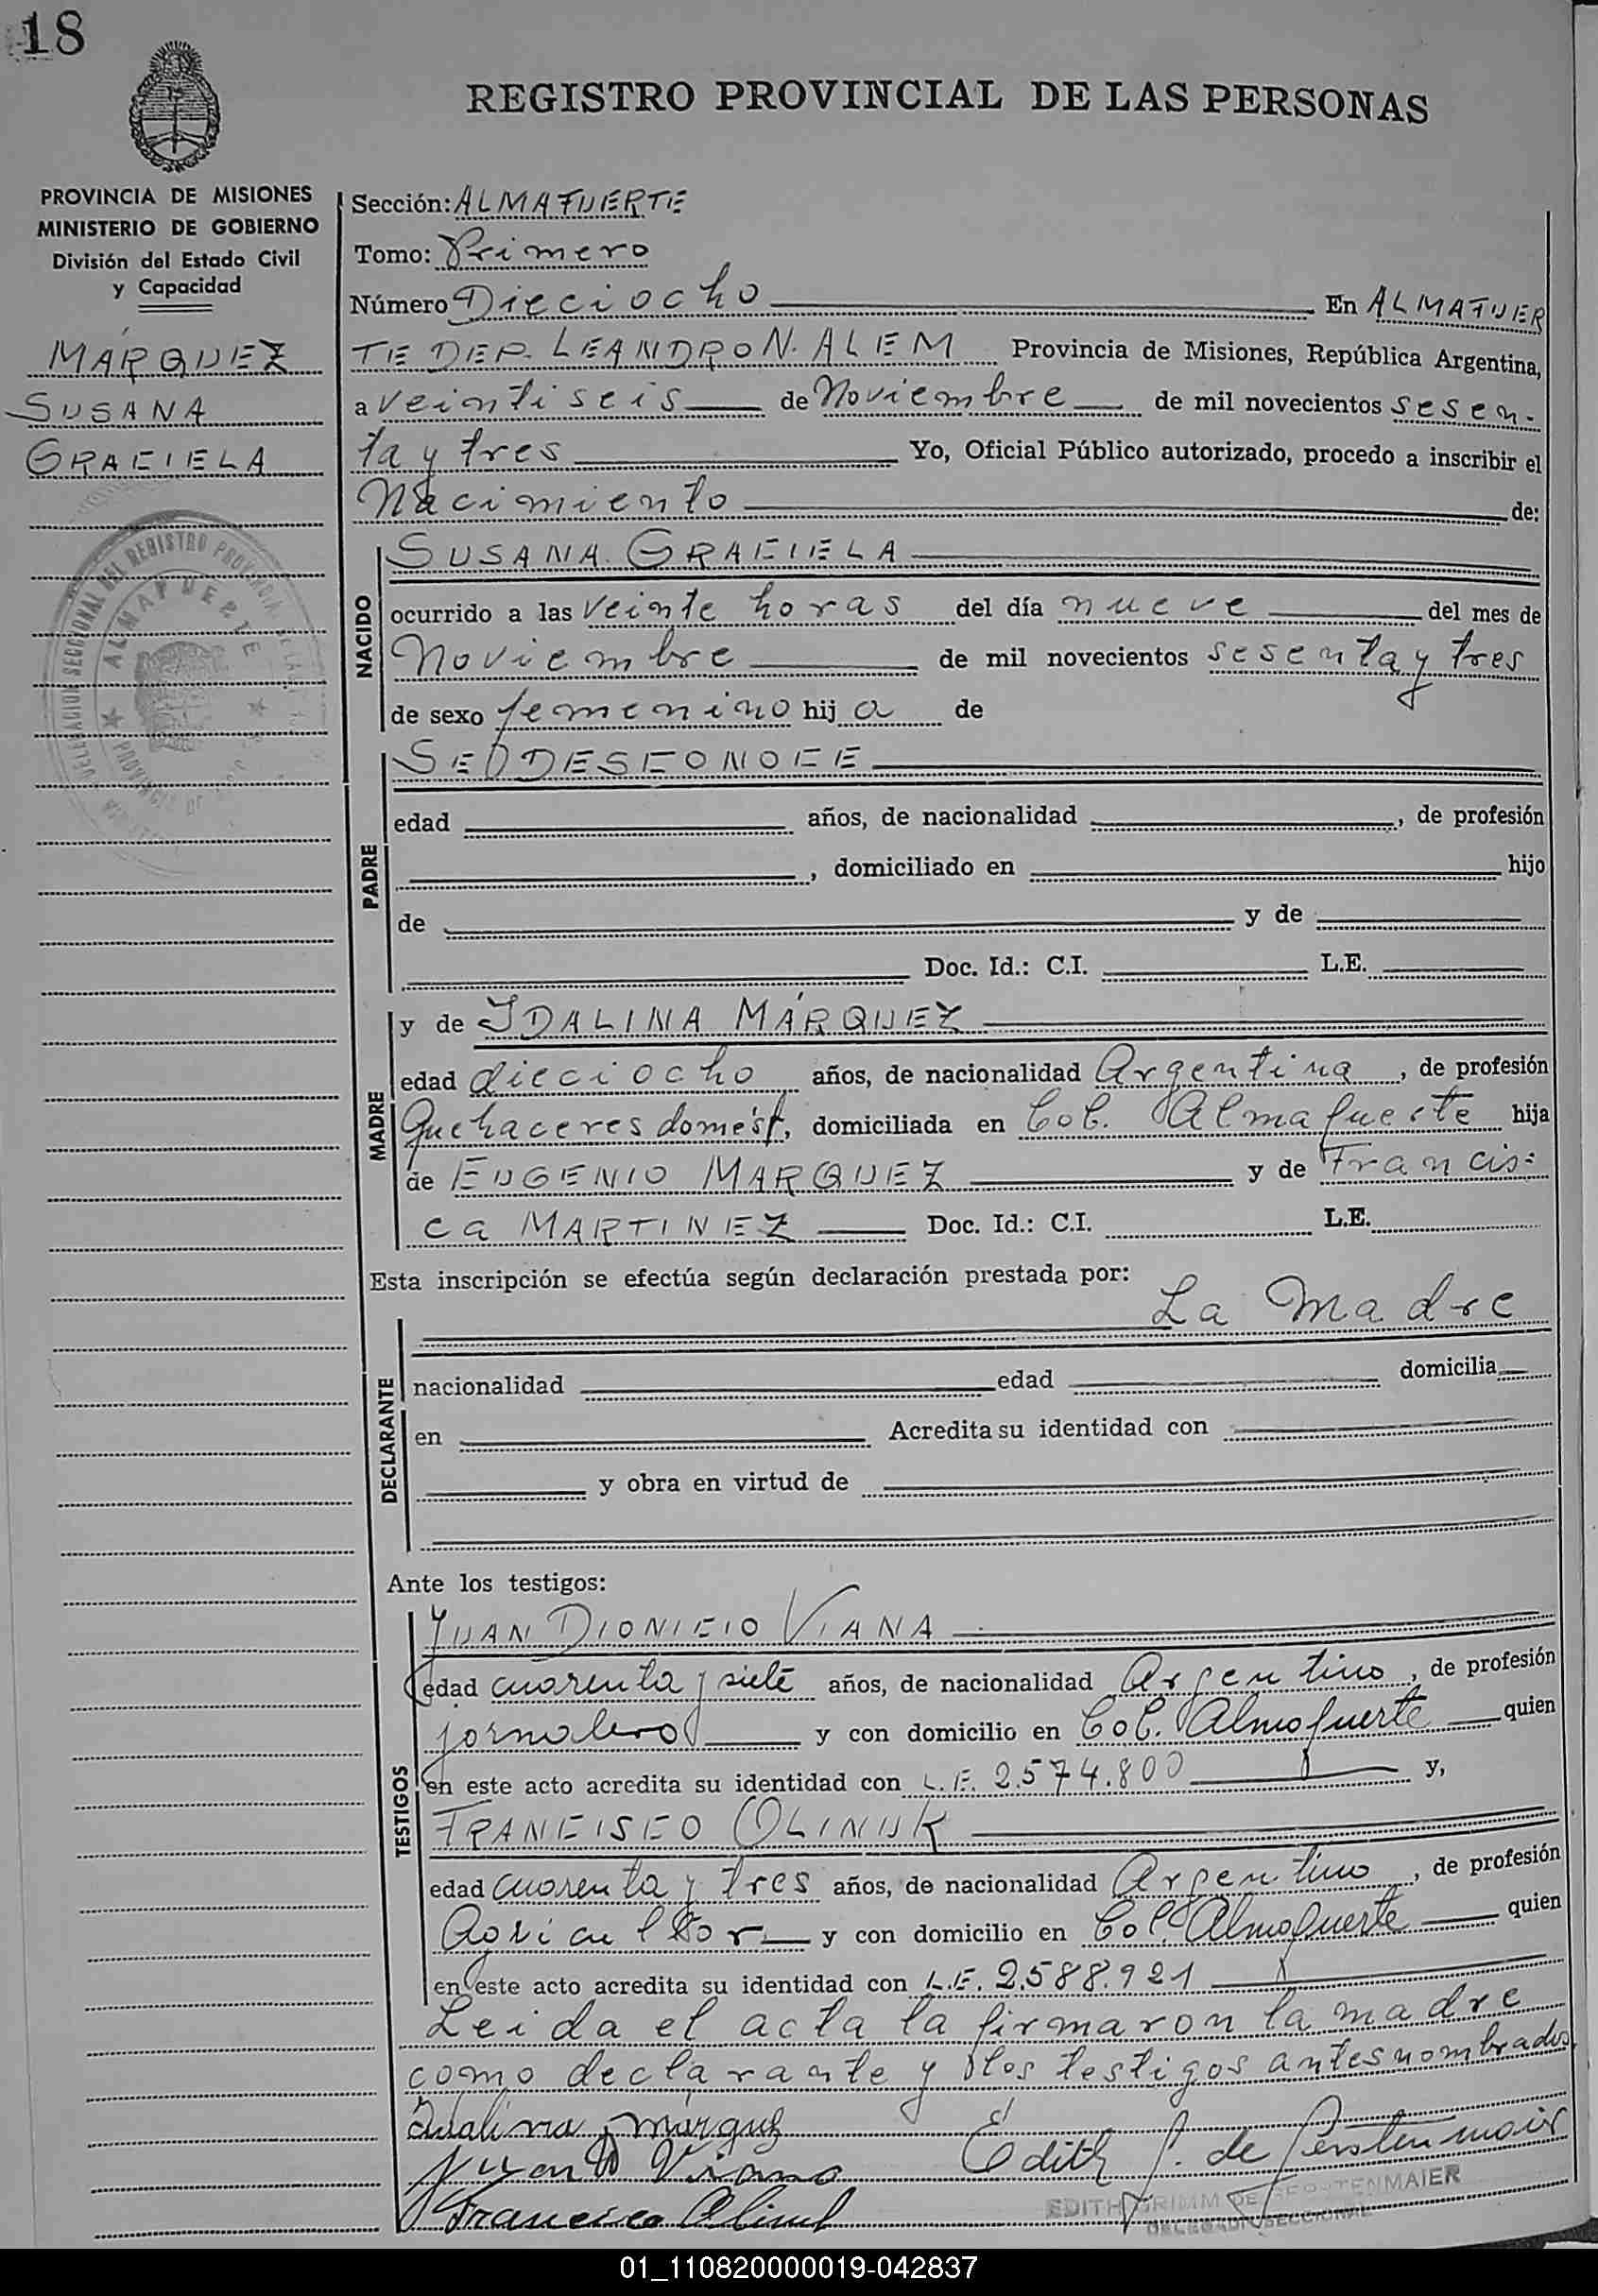 18
REGISTRO PROVINCIAL DE LAS PERSONAS
PROVINCIA DE MISIONES
MINISTERIO DE GOBIERNO
División del Estado Civil
y Capacidad
MÁRQUEZ
SUSANA
GRACIELA
Sección: ALMAFUERTE
Tomo: Primero
Número Dieciocho En ALMAFUER
TE DEP. LEANDRO N. ALEM Provincia de Misiones, República Argentina,
a veintiseis de Noviembre de mil novecientos sesen-
ta y tres Yo, Oficial Público autorizado, procedo a inscribir el
Nacimiento de:
NACIDO
SUSANA GRACIELA
ocurrido a las veinte horas del día nueve del mes de
Noviembre de mil novecientos sesenta y tres
de sexo femenino hij a de
PADRE
SE DESCONOCE
edad años, de nacionalidad , de profesión
, domiciliado en hijo
de y de
Doc. Id.: C.I. L.E.
MADRE
y de IDALINA MÁRQUEZ
edad dieciocho años, de nacionalidad Argentina, de profesión
Quehaceres domést, domiciliada en Col. Almafuerte hija
de EUGENIO MARQUEZ y de Francis=
ca MARTINEZ Doc. Id.: C.I. L.E.
Esta inscripción se efectúa según declaración prestada por:
La Madre
DECLARANTE
nacionalidad edad domicilia
en Acredita su identidad con
y obra en virtud de
Ante los testigos:
TESTIGOS
JUAN DIONICIO VIANA
edad cuarenta y siete años, de nacionalidad Argentino, de profesión
jornalero y con domicilio en Col. Almafuerte quien
en este acto acredita su identidad con L.E. 2.574.800 y,
FRANCISCO OLINUK
edad cuarenta y tres años, de nacionalidad Argentino, de profesión
Agricultor y con domicilio en Col. Almafuerte quien
en este acto acredita su identidad con L.E. 2.588.921
Leida el acta la firmaron la madre
como declarante y los testigos antes nombrados
Idalina márquez
Juan D Viana
Edith G. de Gerstenmaier
Francisco Olinuk
EDITH GRIMM DE GERSTENMAIER
DELEGADO SECCIONAL
01_110820000019-042837